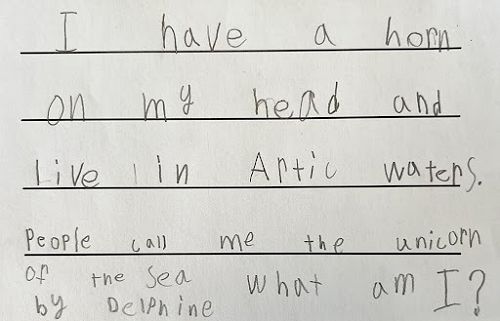 I have a horn
on my head and
Live in Artic waters.
People call me the unicorn
of the Sea What am I?
by Delphine